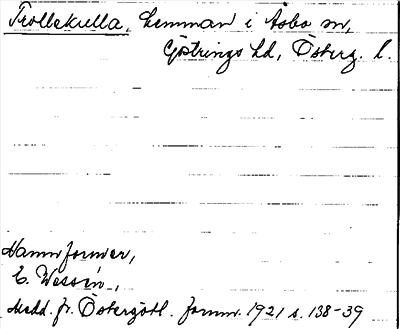 Trollekulla, hemman i Åsbo sn,
Göstrings hd, Österg. l.
Namnformer,
E. Wessén,
Medd. fr. Östergötl. fornm. 1921 s. 138-39